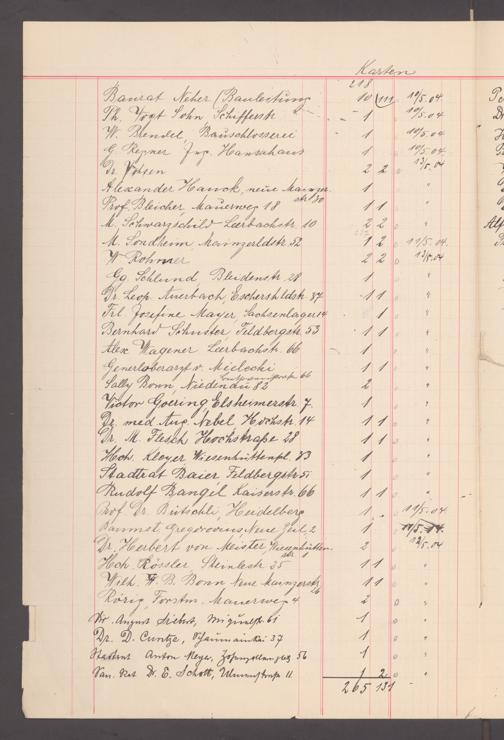 Karten
218
Baurat Neher (Bauleitung 10 (111 10/5.04
Ph. Vogt Sohn, Schifferstr. 1 10/5.04
W. Blendel, Bauschlosserei 1 10/5.04
G. Regner, Ing. Hansahaus 1 10/5.04
Dr. 2 2 0 13/5.04
Alexander Hauck, neue Mainzer- 1 "
str 30
Prof. Bleicher, Mauerweg 18 1 1 "
M. Schwarzschild Leerbachstr. 10 2 2 0 "
M. Sondheim, Mainzerldstr. 52 1 2 0 11/5.04
W Rohmer 2 2 0 13/5.04
Gg. Schlund Bleidenstr. 28 1 "
Dr. Leop. Auerbach Eschershldstr. 87 1 1 "
Frl. Josefine Mayer, Sachsenlager 14 1 "
Bernhard Schuster Feldbergstr. 53 1 1 "
Alex. Wagener Leerbachstr. 66 1 "
Generloberarzt v. Mielecki 1 "
Sally Bonn Niedenau 82 2 "
Victor Goering Elsheimerstr 7. 1 "
Dr. med. Aug. Nebel, Hochstr. 14 1 1 0 "
Dr. M. Flesch Hochstraße 28 1 1 0 "
Hch. Kleyer Wiesenhüttenpl. 33 1 0 "
Stadtrat Baier, Feldbergstr. 5 1 0 "
Rudolf Bangel Kaiserstr. 66 1 1 0 "
Prof Dr. Bütschli, Heidelberg 1 0 11/5.04
Baumst. Gregorovius Neue Zeil 2 1 0 11/5.04
Dr. Herbert von Meister, Wiesenhütten- 2 0 12/5.04
str.
Hch. Rössler, Steinlestr. 35 1 1 "
Wilh. B. Bonn Neue Mainzerstr. 1 1 "
26
Rörig, Forstm. Mauerweg 4 2 0 "
Dr. August Liebst, Miquelstr. 61 1 0 "
Dr. D. Cuntze, Schaumainkai 37 1 0 "
Stadtrat Anton Meyer, Hohenzollernplatz 56 1 0 "
San. Rat Dr. E. Schott, 11 1 2 0 "
265 131